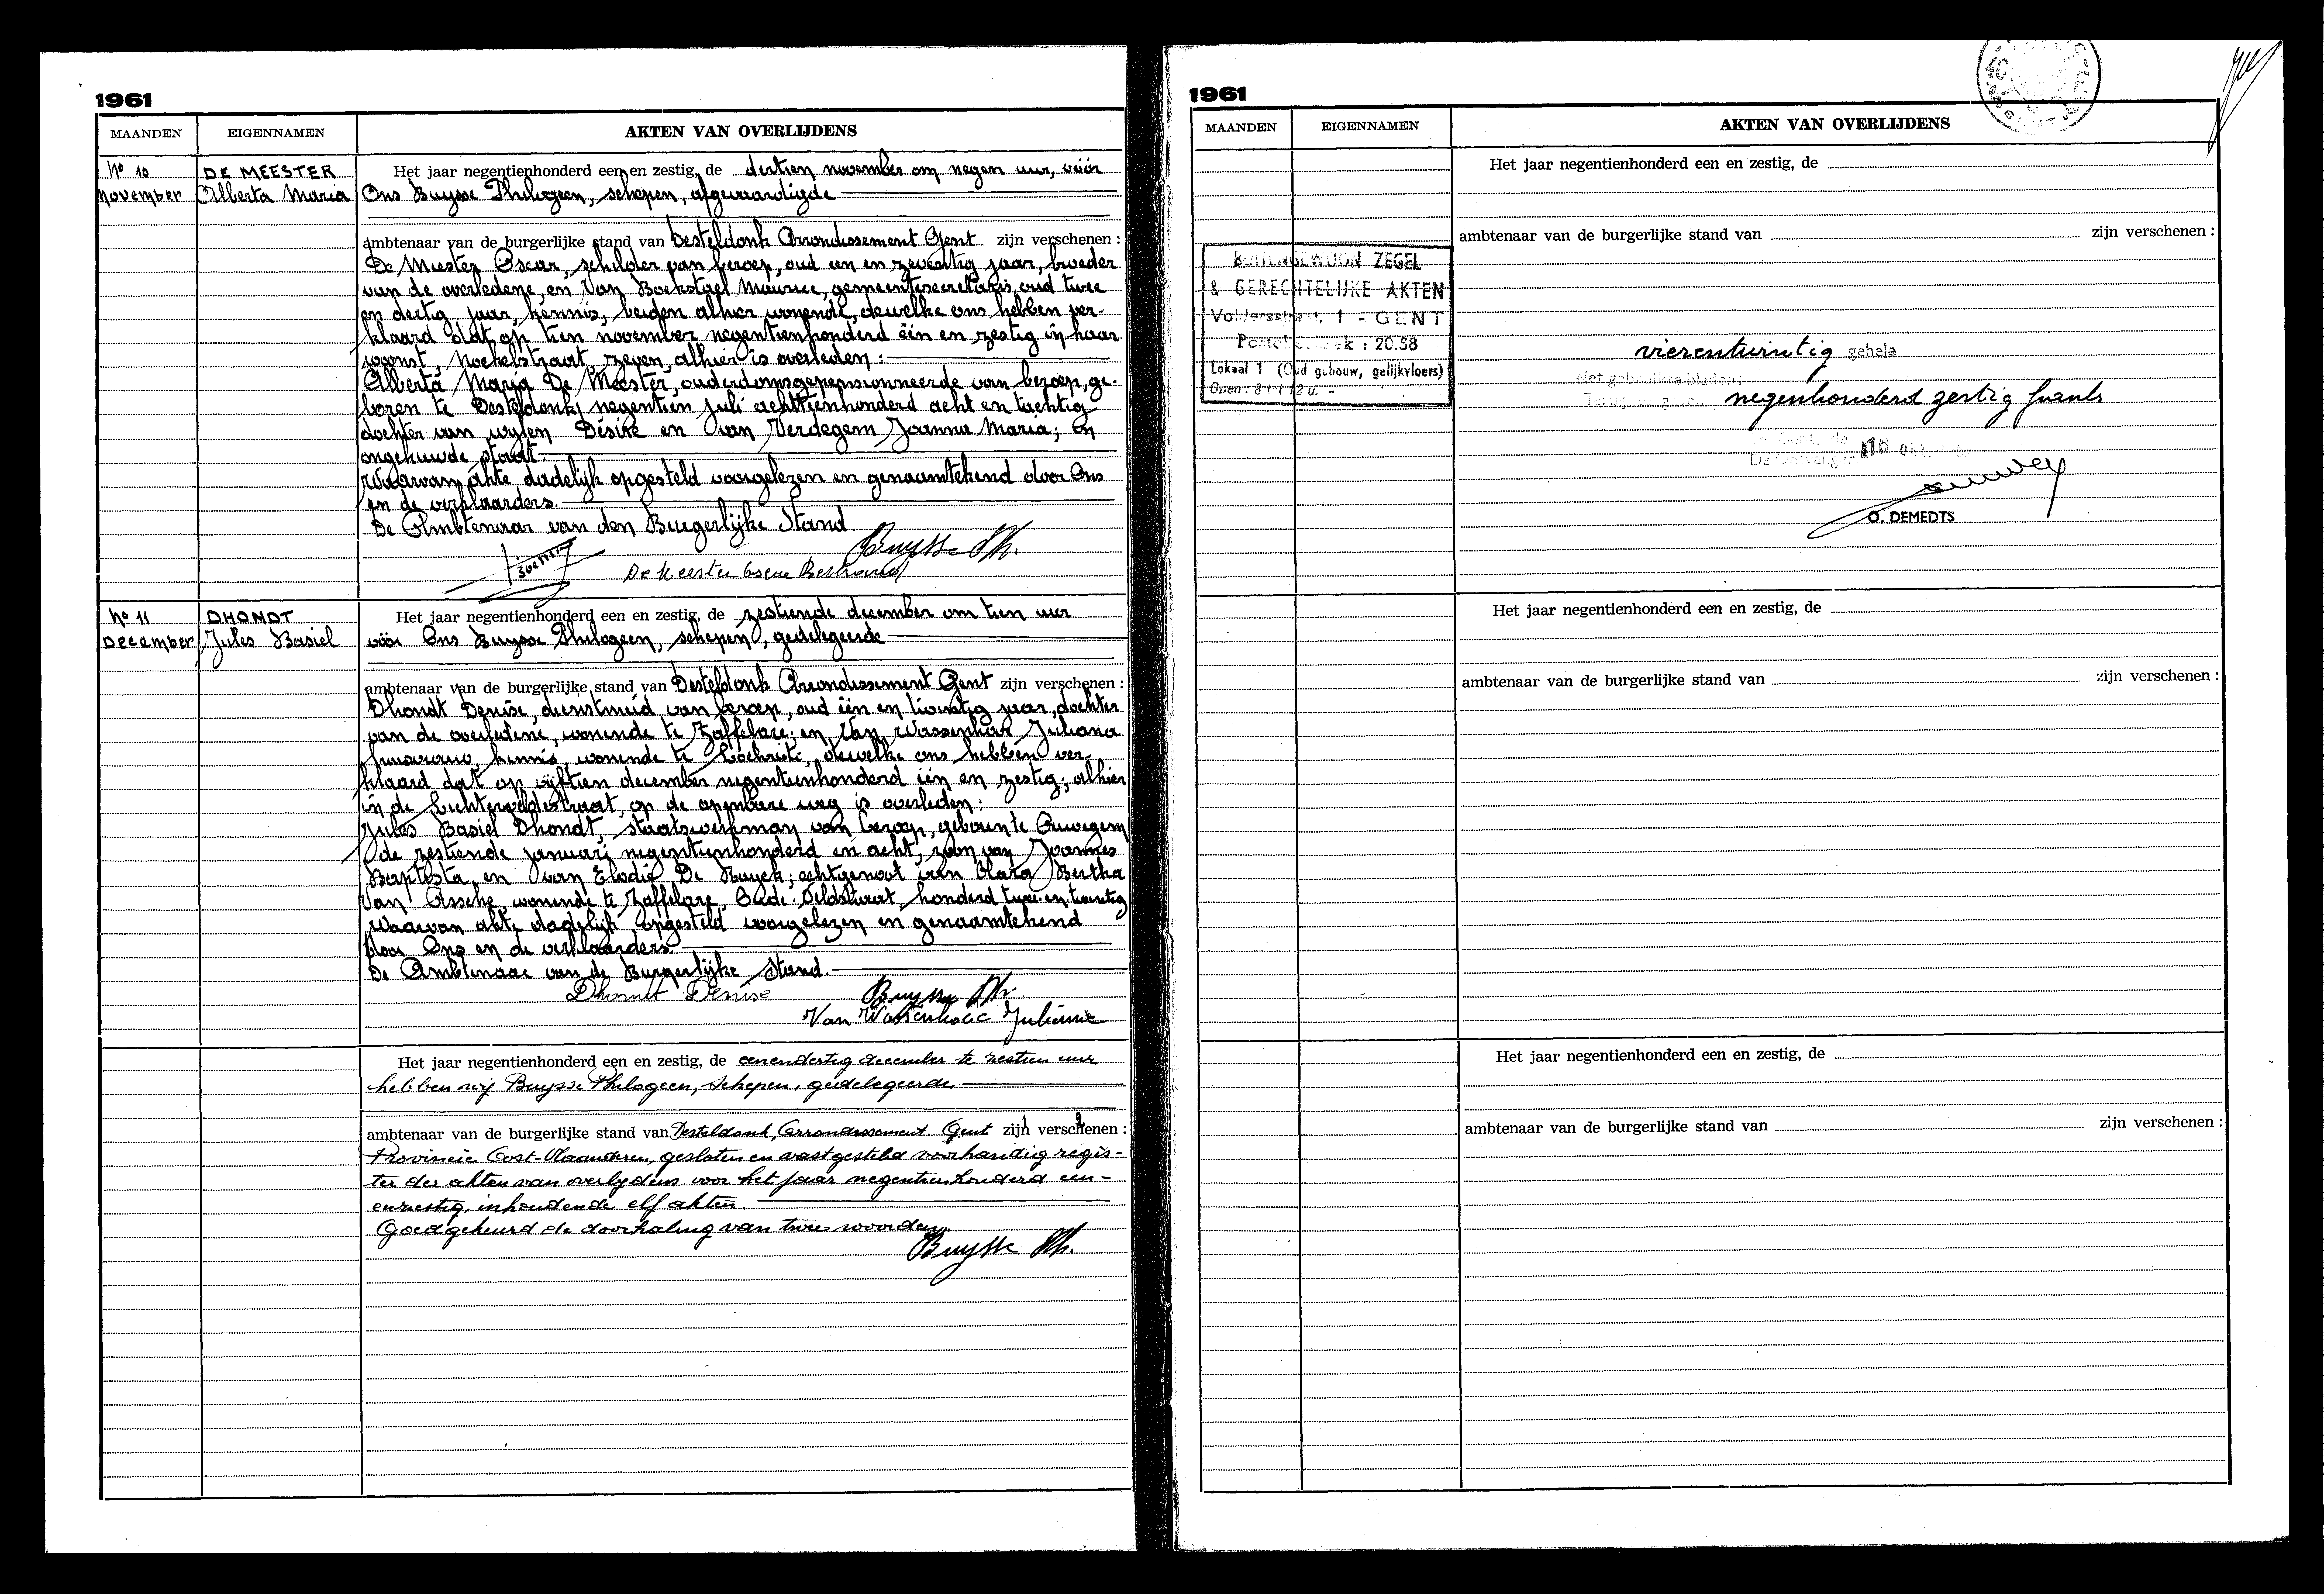 1961
MAANDEN EIGENNAMEN AKTEN VAN OVERLIJDENS
No 10 DE MEESTER Het jaar negentienhonderd een en zestig, de dertien november om negen uur, vóór
November Alberta Maria Ons Buysse Philogeen, schepen, afgevaardigde
ambtenaar van de burgerlijke stand van Desteldonk Arrondissement Gent zijn verschenen :
De Meester Oscar, schilder van beroep, oud een en zeventig jaar, broeder
van de overledene, en Van Bockstael Maurice, gemeentesecretaris, oud twee
en dertig jaar, kennis, beiden alhier wonende, dewelke ons hebben ver-
klaard dat op tien november negentienhonderd één en zestig in haar
woonst, straat, zeven, alhier is overleden :
Alberta Maria De Meester, ouderdomsgepensionneerde van beroep, ge-
boren te Desteldonk, negentien juli achttienhonderd acht en tachtig
dochter van wylen Désiré en van Verdegem Joanna Maria; on
ongehuwde staat
Waarvan akte dadelijk opgesteld voorgelezen en genaamtekend door Ons
en de verklaarders.
De Ambtenaar van den Burgerlijke Stand
Buysse Ph.
De Meester Oscar Bertrand
No 11 DHONDT Het jaar negentienhonderd een en zestig, de zestiende december om tien uur
December Jules Basiel vóór Ons Buysse Philogeen, schepen, gedelegeerde
ambtenaar van de burgerlijke stand van Desteldonk Arrondissement Gent zijn verschenen :
Dhondt Denise, dienstmeid van beroep, oud één en twintig jaar, dochter
van de overledene, wonende te Zaffelare; en Van Wassenhove Juliana
kennis, wonende te Lochristi, dewelke ons hebben ver-
klaard dat op vijftien december negentienhonderd één en zestig, alhier
in de Lichterveldestraat, op de openbare weg is overleden :
Jules Basiel Dhondt, staatswerkman van beroep, geboren te Ouwegem
de zestiende januari negentienhonderd en acht, zoon van Joannes
Baptista en van Elodie De Ruyck; echtgenoot van Clara Bertha
Van Assche, wonende te Zaffelare, Oude Veldstraat, honderd twee en twintig
Waarvan akte dadelijk opgesteld voorgelezen en genaamtekend
door Ons en de verklaarders.
De Ambtenaar van de Burgerlijke Stand.
Dhondt Denise Buysse Ph.
Van Wassenhove Julienne
Het jaar negentienhonderd een en zestig, de eenendertig december te zestien uur
hebben wij Buysse Philogeen, schepen, gedelegeerde
ambtenaar van de burgerlijke stand van Desteldonk, Arrondissement Gent zijn verschenen :
Provincie Oost-Vlaanderen, gesloten en vastgesteld voorhandig regis-
ter der akten van overlydens voor het jaar negentienhonderd een-
enzestig, inhoudende elf akten.
Goedgekeurd de doorhaling van twee woorden.
Buysse Ph.
1961
MAANDEN EIGENNAMEN AKTEN VAN OVERLIJDENS
Het jaar negentienhonderd een en zestig, de
ambtenaar van de burgerlijke stand van zijn verschenen :
BUITENGEWOON ZEGEL
& GERECHTELIJKE AKTEN
Voldersstraat, 1 - GENT
Postcheckrek : 20.58
Lokaal 1 (Oud gebouw, gelijkvloers)
Open : 8 t/t 12 u.
vierentwintig gehele
niet gebruikte bladen;
negenhonderd zestig frank
Gent, de 16
De Ontvanger,
O. DEMEDTS
Het jaar negentienhonderd een en zestig, de
ambtenaar van de burgerlijke stand van zijn verschenen :
Het jaar negentienhonderd een en zestig, de
ambtenaar van de burgerlijke stand van zijn verschenen :